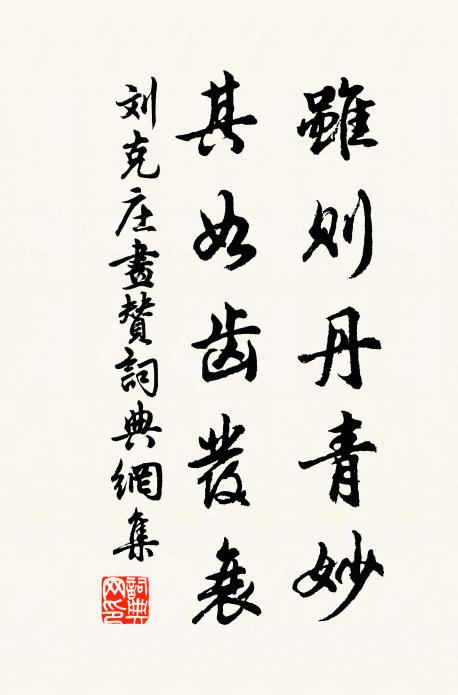 雖则丹青妙
其如齿發衰
刘克庄畫贊詞典網集
詞典